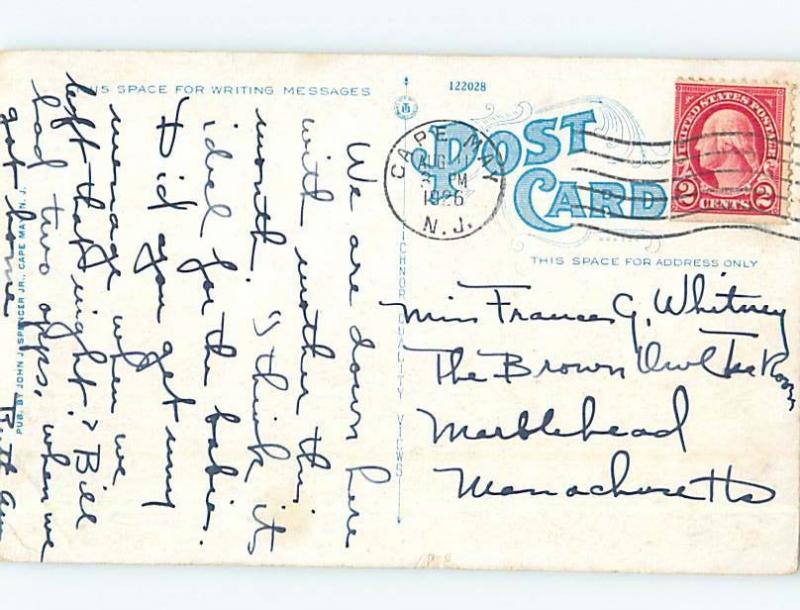 THIS SPACE FOR WRITING MESSAGES
122028
POST
CARD
CAPE MAY
AUG 11
3 PM
1926
N.J.
UNITED STATES POSTAGE
2 CENTS 2
THIS SPACE FOR ADDRESS ONLY
Miss Frances G. Whitney
The Brown Owl Tea Room
Marblehead
Massachusetts
We are down here
with mother this
month. I think it
idel for the babies.
Did you get my
message when we
left that night? Bill
had two opps, when we
got home
Ruth Ann
PUB. BY JOHN J. SPENCER JR., CAPE MAY, N. J.
QUALITY VIEWS